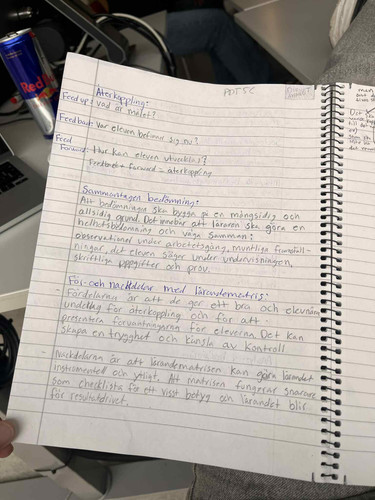 PDTSC
Återkoppling:
Feed up: Vad är målet?
Feed back: Var eleven befinner sig nu?
Feed
Forward: Hur kan eleven utvecklas?
Feedback + forward = återkoppling
Sammantagen bedömning:
Att bedömningen ska bygga på en mångsidig och
allsidig grund. Det innebär att läraren ska göra en
helhetsbedömning och väga samman:
observationer under arbetets gång, muntliga framställ-
ningar, det eleven säger under undervisningen,
skriftliga uppgifter och prov.
För- och nackdelar med lärandematris:
Fördelarna är att de ger ett bra och elevnära
underlag för återkoppling och för att
presentera förväntningarna för eleverna. Det kan
skapa en trygghet och känsla av kontroll
- Nackdelarna är att lärandematrisen kan göra lärandet
instrumentell och ytligt. Att matrisen fungerar snarare
som checklista för ett visst betyg och lärandet blir
för resultatdrivet.
Red
man
Det